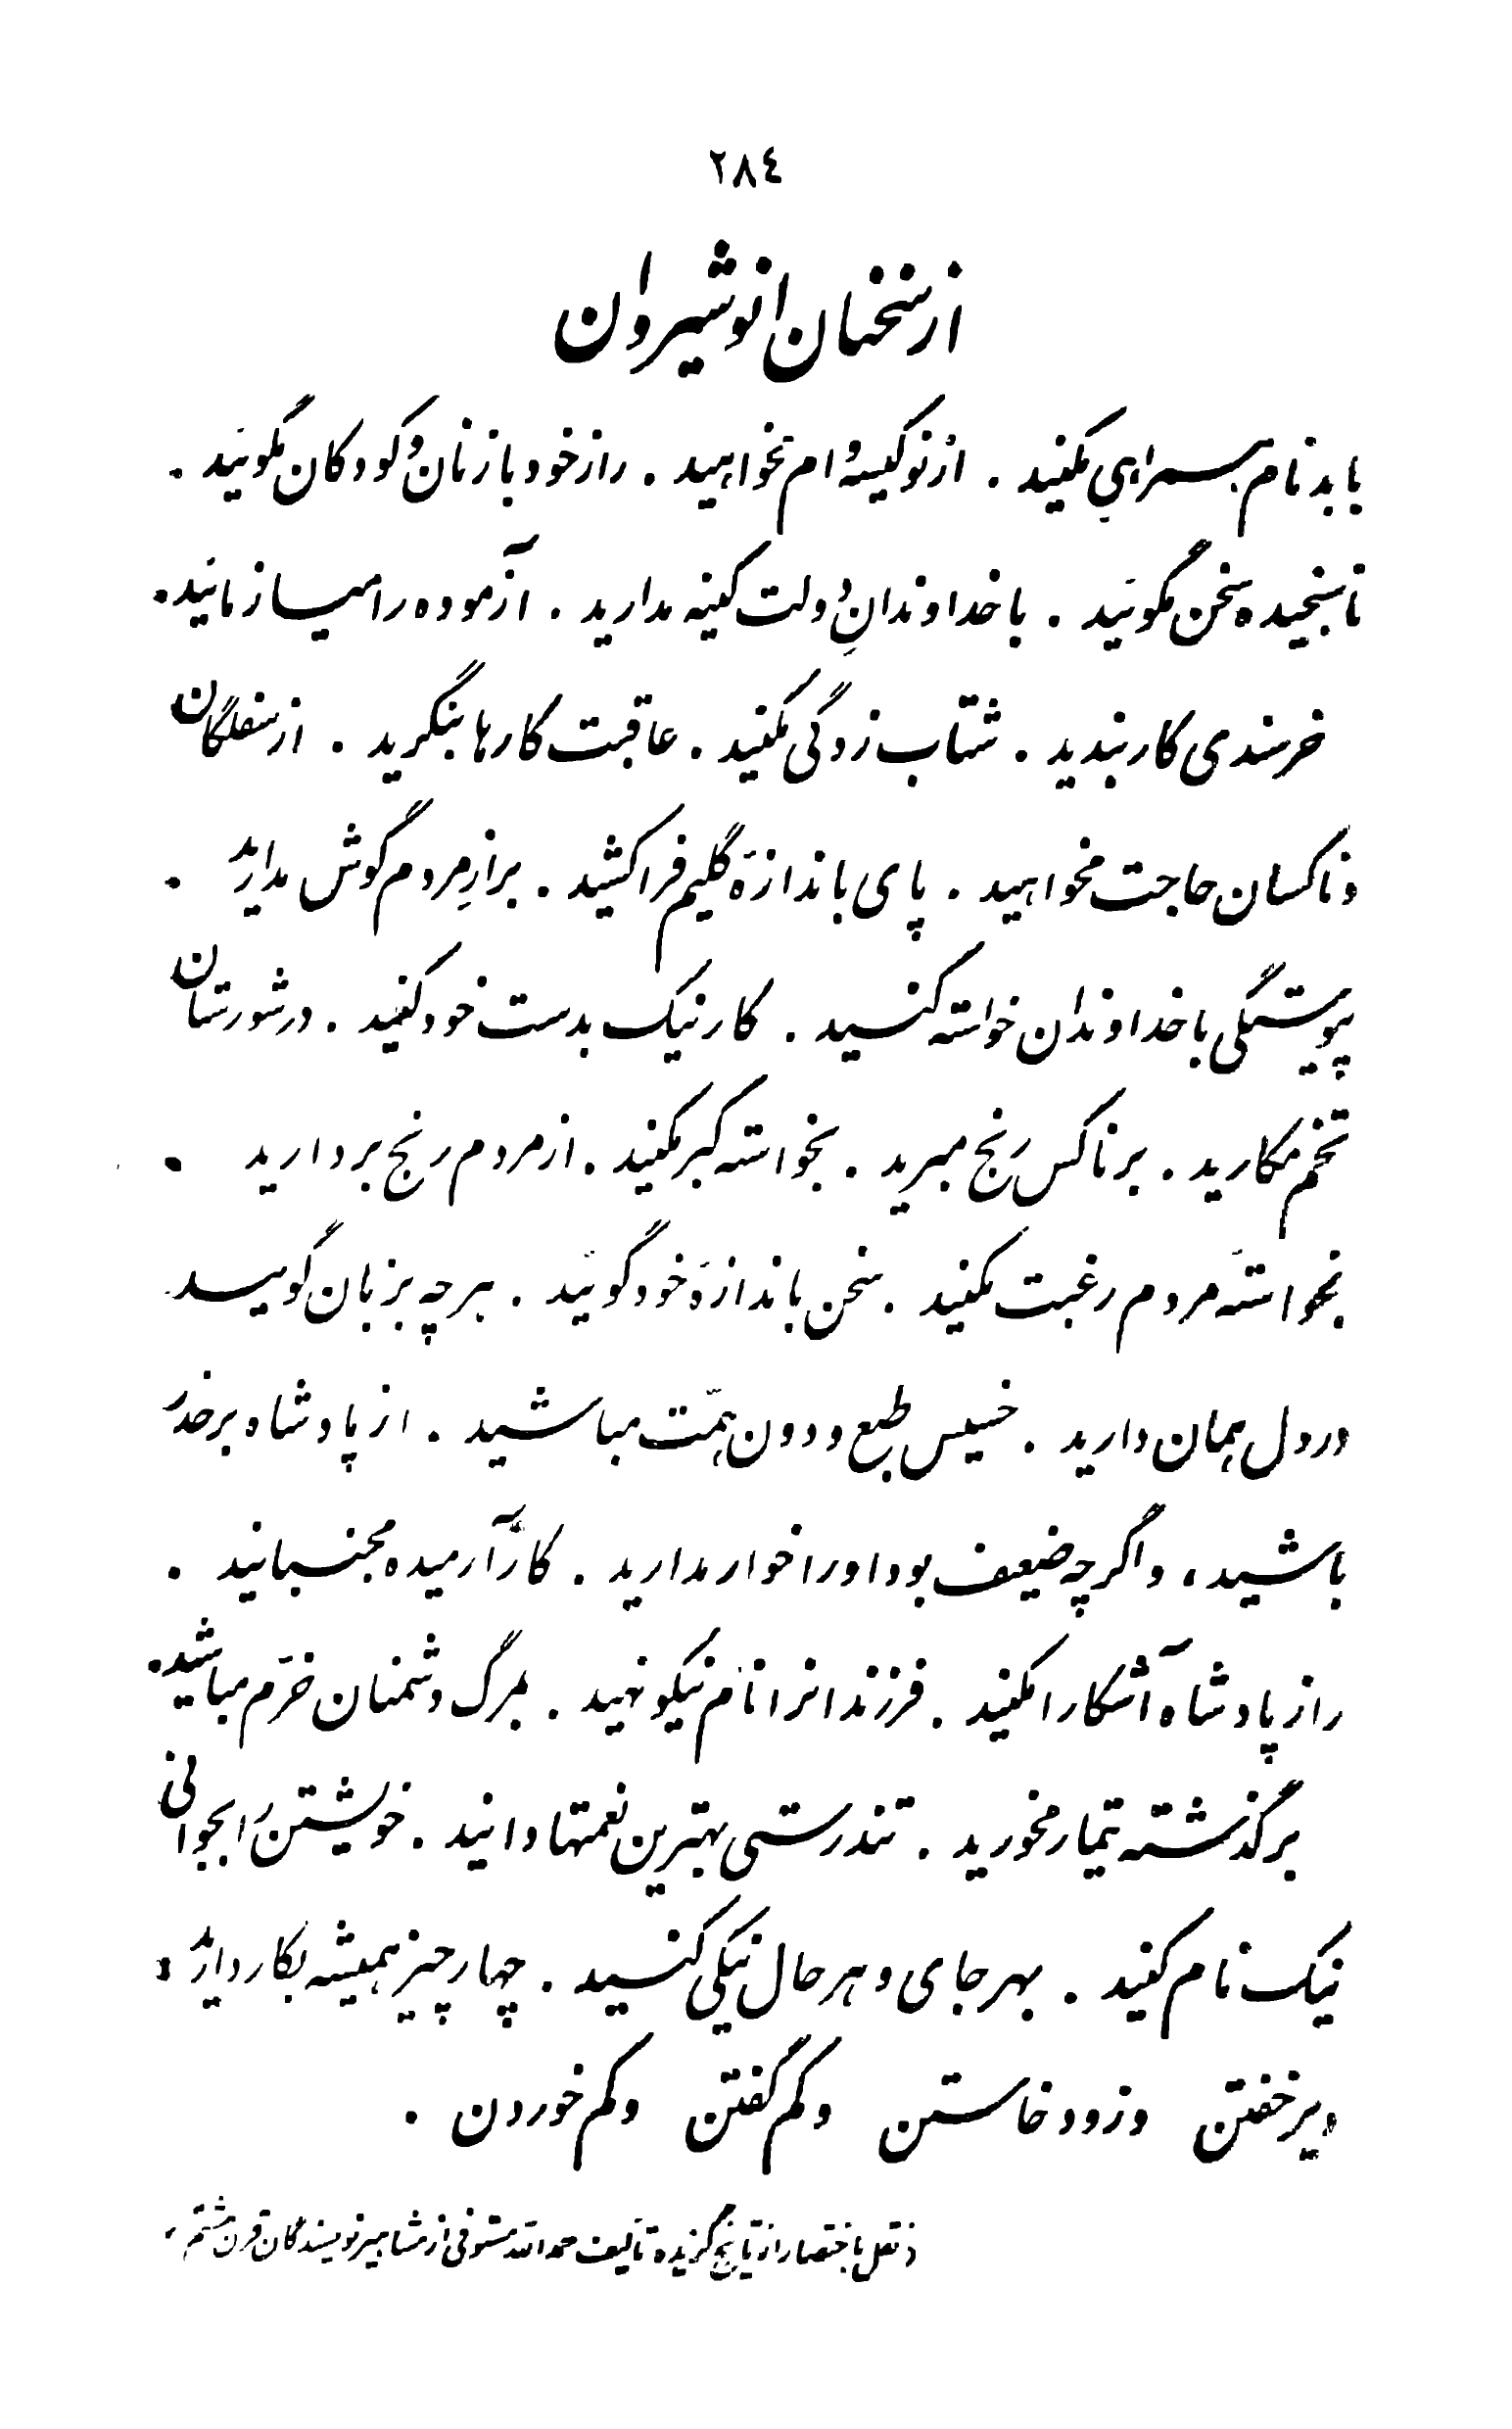 ٢٨٤
از سخنان انوشیروان
با بدنام همسرایی مکنید . از نوکیسه وام نخواهید . راز خود با زنان و کودکان مگوئید .
ناسنجیده سخن مگوئید . با خداوندانِ دولت کینه مدارید . آزموده را میازمائید .
خرسندی کار بندید . شتاب زدگی مکنید . عاقبت کارها بنگرید . از سفلگان
و ناکسان حاجت مخواهید . پای باندازهٔ گلیم فرا کشید . برازِ مردم گوش مدارید .
پیوستگی با خداوندان خواسته کنید . کار نیک بدست خود کنید . در شورستان
تخم مکارید . بر ناکس رنج مبرید . بخواسته کبر مکنید . از مردم رنج بردارید .
بخواستهٔ مردم رغبت مکنید . سخن باندازهٔ خود گوئید . هر چه بزبان گویید
در دل همان دارید . خسیس طبع و دون همّت مباشید . از پادشاه بر حذر
باشید ، و اگر چه ضعیف بود او را خوار مدارید . کار آرمیده مجنبانید .
راز پادشاه آشکارا مکنید . فرزندانرا نام نیکو نهید . بمرگ دشمنان خرّم مباشید .
بر گذشته تیمار مخورید . تندرستی بهترین نعمتها دانید . خویشتن را بجوانی
نیک نام کنید . بهر جای و هر حال نیکی کنید . چهار چیز همیشه بکار دارید :
دیر خفتن و زود خاستن و کم گفتن و کم خوردن .
« نقل باختصار از تاریخ گزیده تألیف حمدالله مستوفی از مشاهیر نویسندگان قرن هشتم »